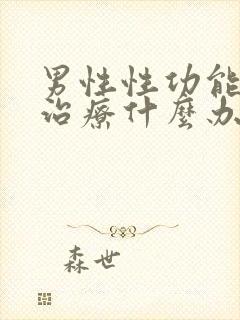 男性性功能
治療什麼办
森世